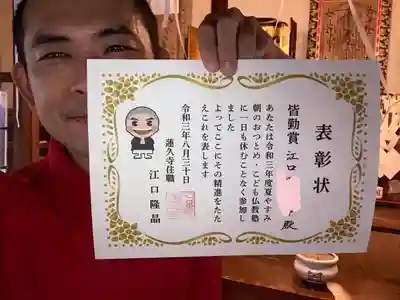 表彰状
皆勤賞 江口 殿
あなたは令和三年度夏やすみ
朝のおつとめ・こども仏教塾
に一日も休むことなく参加し
ました
よってここにその精進をたた
えこれを表します
令和三年八月三十日
蓮久寺住職
江口隆晶